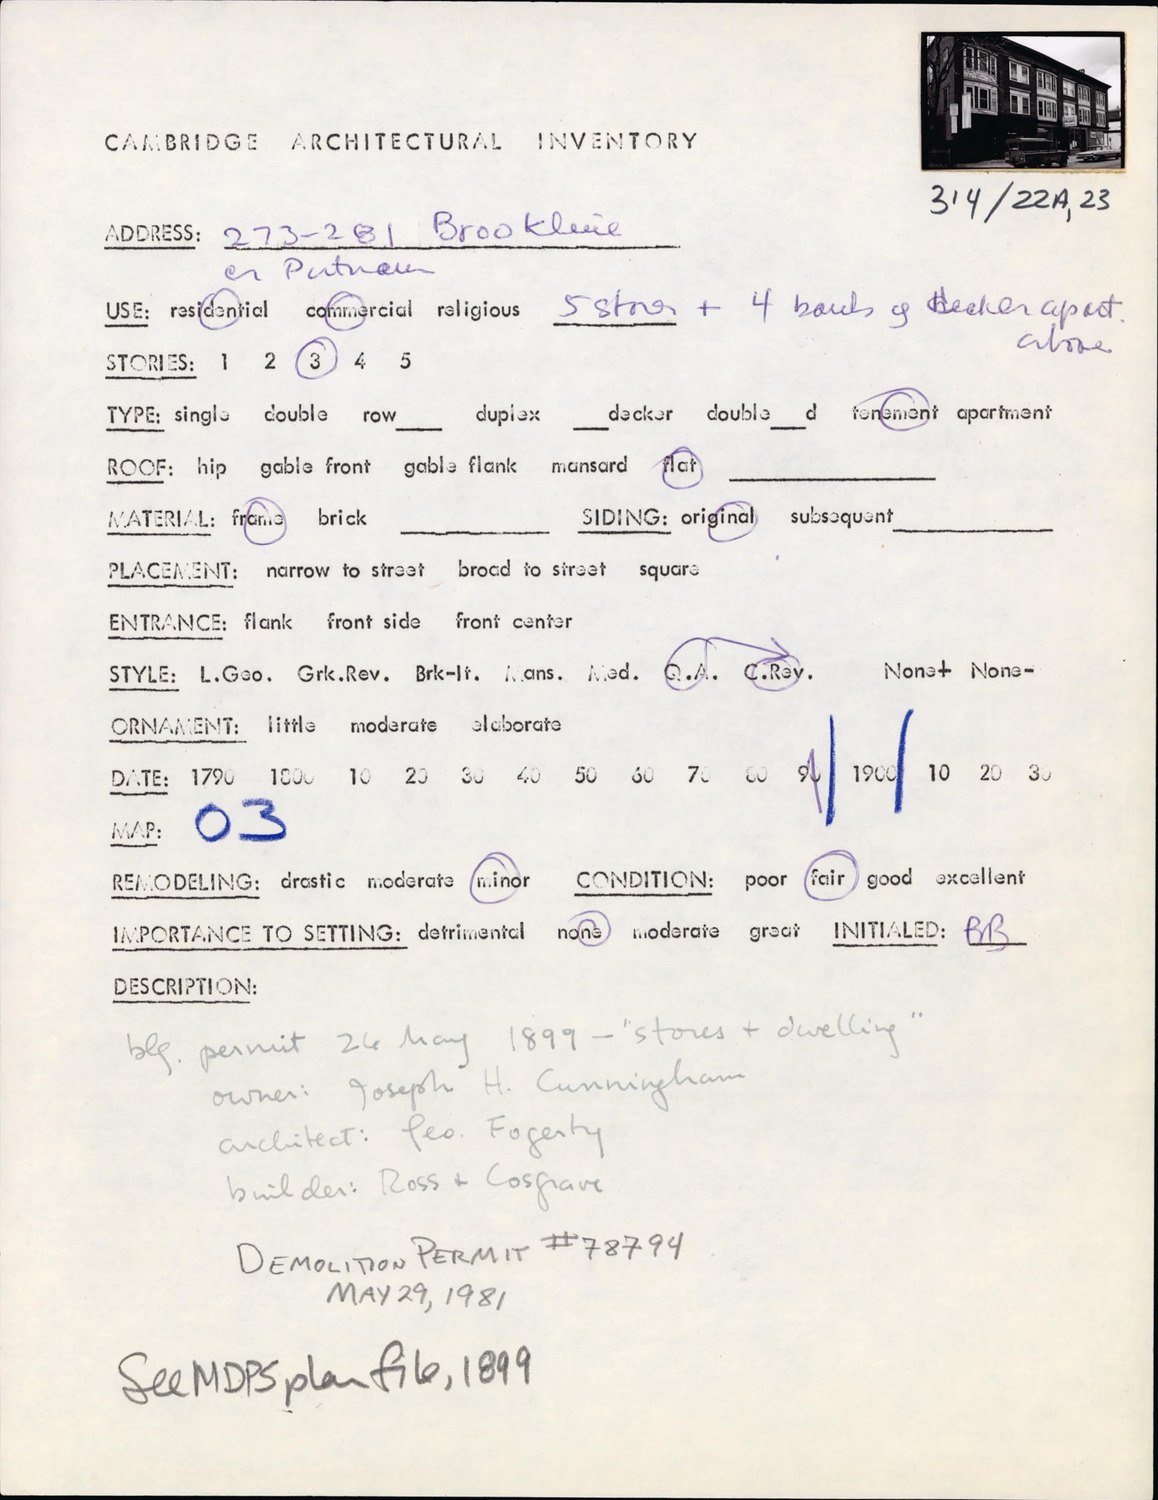 CAMBRIDGE ARCHITECTURAL INVENTORY
314/22A, 23
ADDRESS: 273-281 Brookline
cr Putnam
USE: residential commercial religious 5 stores + 4 banks of decker apart.
above
STORIES: 1 2 3 4 5
TYPE: single double row___ duplex ___decker double___d tenement apartment
ROOF: hip gable front gable flank mansard flat
MATERIAL: frame brick SIDING: original subsequent
PLACEMENT: narrow to street broad to street square
ENTRANCE: flank front side front center
STYLE: L.Geo. Grk.Rev. Brk-It. Mans. Med. Q.A. C.Rev. None+ None-
ORNAMENT: little moderate elaborate
DATE: 1790 1800 10 20 30 40 50 60 70 80 90 1900 10 20 30
MAP: 03
REMODELING: drastic moderate minor CONDITION: poor fair good excellent
IMPORTANCE TO SETTING: detrimental none moderate great INITIALED: BB
DESCRIPTION:
blg. permit 26 May 1899 - "stores + dwelling"
owner: Joseph H. Cunningham
architect: Geo. Fogerty
builder: Ross + Cosgrave
DEMOLITION PERMIT #78794
MAY 29, 1981
See MDPS plan file, 1899